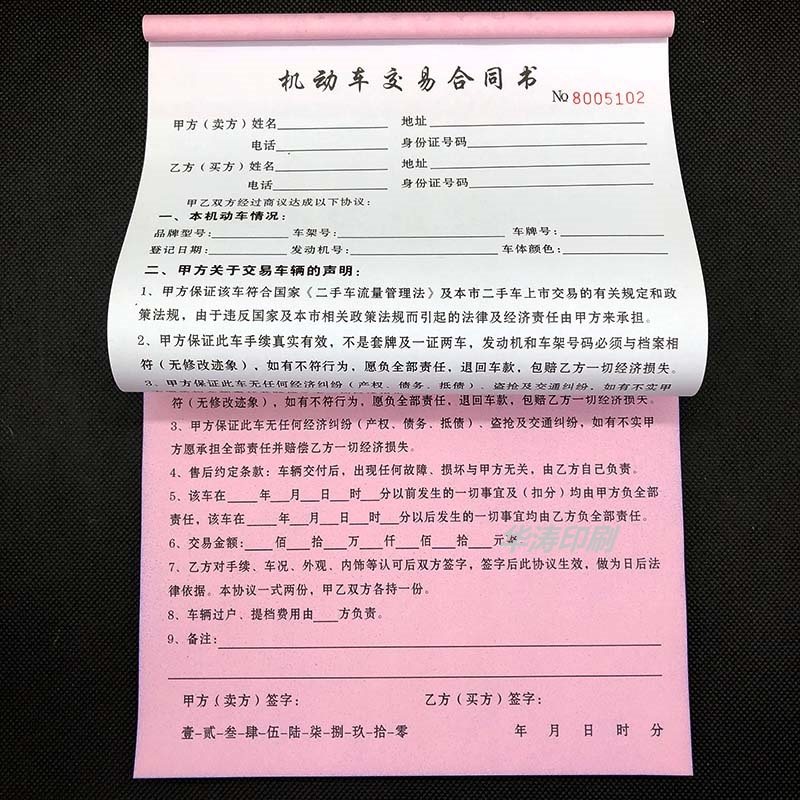 机动车交易合同书
No 8005102
甲方(卖方)姓名 地址
电话 身份证号码
乙方(买方)姓名 地址
电话 身份证号码
甲乙双方经过商议达成以下协议:
一、本机动车情况:
品牌型号: 车架号: 车牌号:
登记日期: 发动机号: 车体颜色:
二、甲方关于交易车辆的声明:
1、甲方保证该车符合国家《二手车流量管理法》及本市二手车上市交易的有关规定和政
策法规,由于违反国家及本市相关政策法规而引起的法律及经济责任由甲方来承担。
2、甲方保证此车手续真实有效,不是套牌及一证两车,发动机和车架号码必须与档案相
符(无修改迹象),如有不符行为,愿负全部责任,退回车款,包赔乙方一切经济损失。
3、甲方保证此车无任何经济纠纷(产权、债务、抵债)、盗抢及交通纠纷,如有不实甲
符(无修改迹象),如有不符行为,愿负全部责任,退回车款,包赔乙方一切经济损失。
3、甲方保证此车无任何经济纠纷(产权、债务、抵债)、盗抢及交通纠纷,如有不实甲
方愿承担全部责任并赔偿乙方一切经济损失。
4、售后约定条款:车辆交付后,出现任何故障、损坏与甲方无关,由乙方自己负责。
5、该车在____年__月__日__时__分以前发生的一切事宜及(扣分)均由甲方负全部
责任,该车在____年__月__日__时__分以后发生的一切事宜均由乙方负全部责任。
6、交易金额:___佰___拾___万___仟___佰___拾___元整
华涛印刷
7、乙方对手续、车况、外观、内饰等认可后双方签字,签字后此协议生效,做为日后法
律依据。本协议一式两份,甲乙双方各持一份。
8、车辆过户、提档费用由___方负责。
9、备注:
甲方(卖方)签字: 乙方(买方)签字:
壹-贰-叁-肆-伍-陆-柒-捌-玖-拾-零 年 月 日 时 分